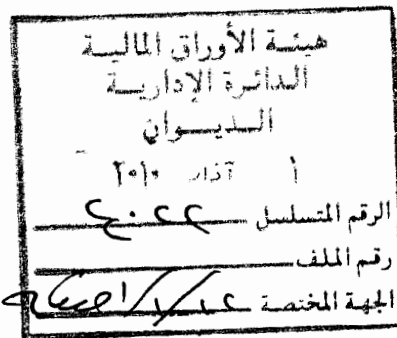 هيئة الأوراق المالية
الدائرة الإدارية
الديوان
١ آذار ٢٠١٠
الرقم المتسلسل
رقم الملف
الجهة المختصة